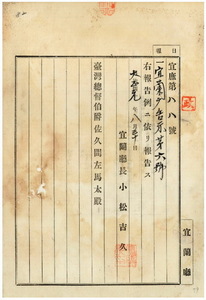 日報
宜庶第八八號
一宜蘭廳告示第六號
右報告例ニ依リ報告ス
大正元年八月三十日
宜蘭廳長 小松吉久
臺灣總督伯爵佐久間左馬太殿
宜蘭廳